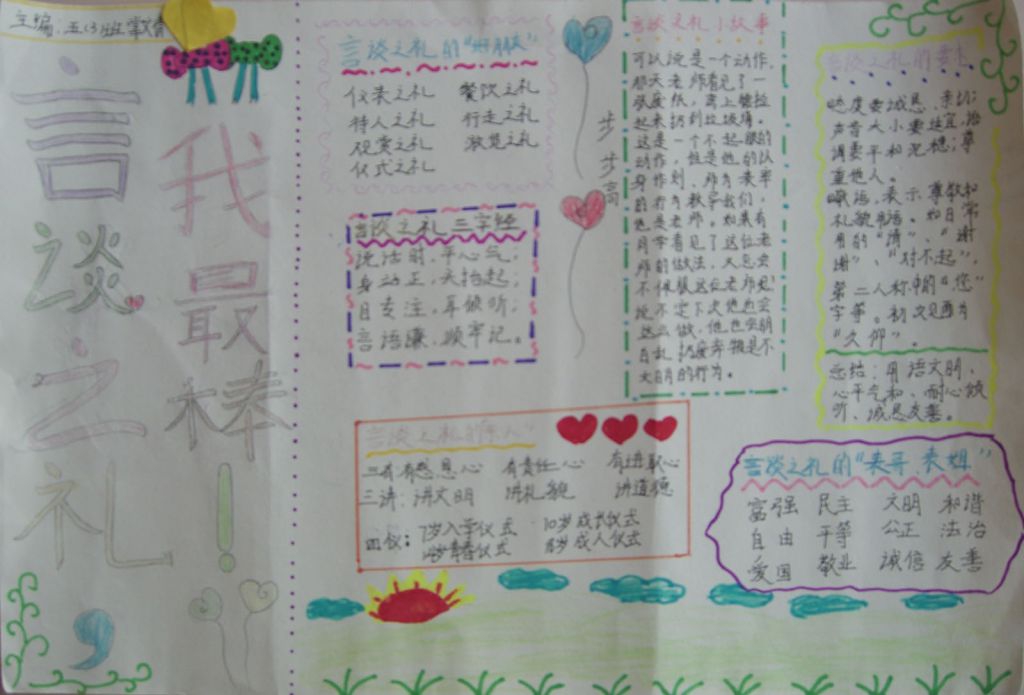 主编:五(3)班
言谈之礼
我最棒!
言谈之礼的“
仪表之礼 餐饮之礼
待人之礼 行走之礼
观赏之礼 游览之礼
仪式之礼
步步高
言谈之礼三字经
说话时,平心气;
身动正,头抬起;
目专注,耳倾听;
言语谦,须牢记。
言谈之礼小故事
可以说是一个动作,
那天老师看见了一
张废纸,马上捡拉
起来扔到垃圾角。
这是一个不起眼的
动作,但是他的以
身作则,师为表率
的行为教学我们,
他是老师。如果有
同学看见了这位老
师的做法,又怎会
不佩服这位老师呢?
说不定下次他也会
这么做,他也会明
白乱扔废弃物是不
文明的行为。
言谈之礼的要求
态度要诚恳、亲切;
声音大小要适宜,语
调要平和沉稳;尊
重他人。
敬语,表示尊敬和
礼貌用语。如日常
用的“请”、“谢
谢”、“对不起”,
第二人称中的“您”
字等。初次见面为
“久仰”。
总结:用语文明、
心平气和、耐心倾
听、诚恳友善。
言谈之礼的
三有:有感恩心 有责任心 有进取心
三讲:讲文明 讲礼貌 讲道德
四仪:7岁入学仪式 10岁成长仪式
14岁青春仪式 18岁成人仪式
言谈之礼的“表哥、表姐”
富强 民主 文明 和谐
自由 平等 公正 法治
爱国 敬业 诚信 友善